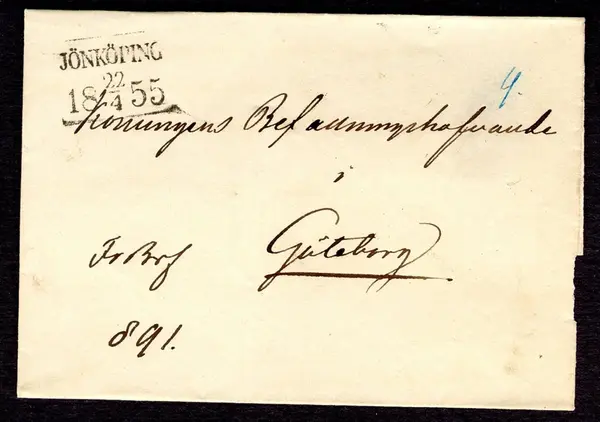 JÖNKÖPING
18 22/4 55
4.
Konungens Befallningshafvande
i
Göteborg
FrBrf
891.